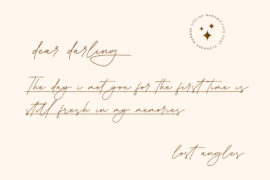 dear darling
The day i met you for the first time is
still fresh in my memories
lost angles